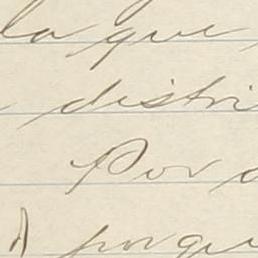 la que
distri
Por
porqu